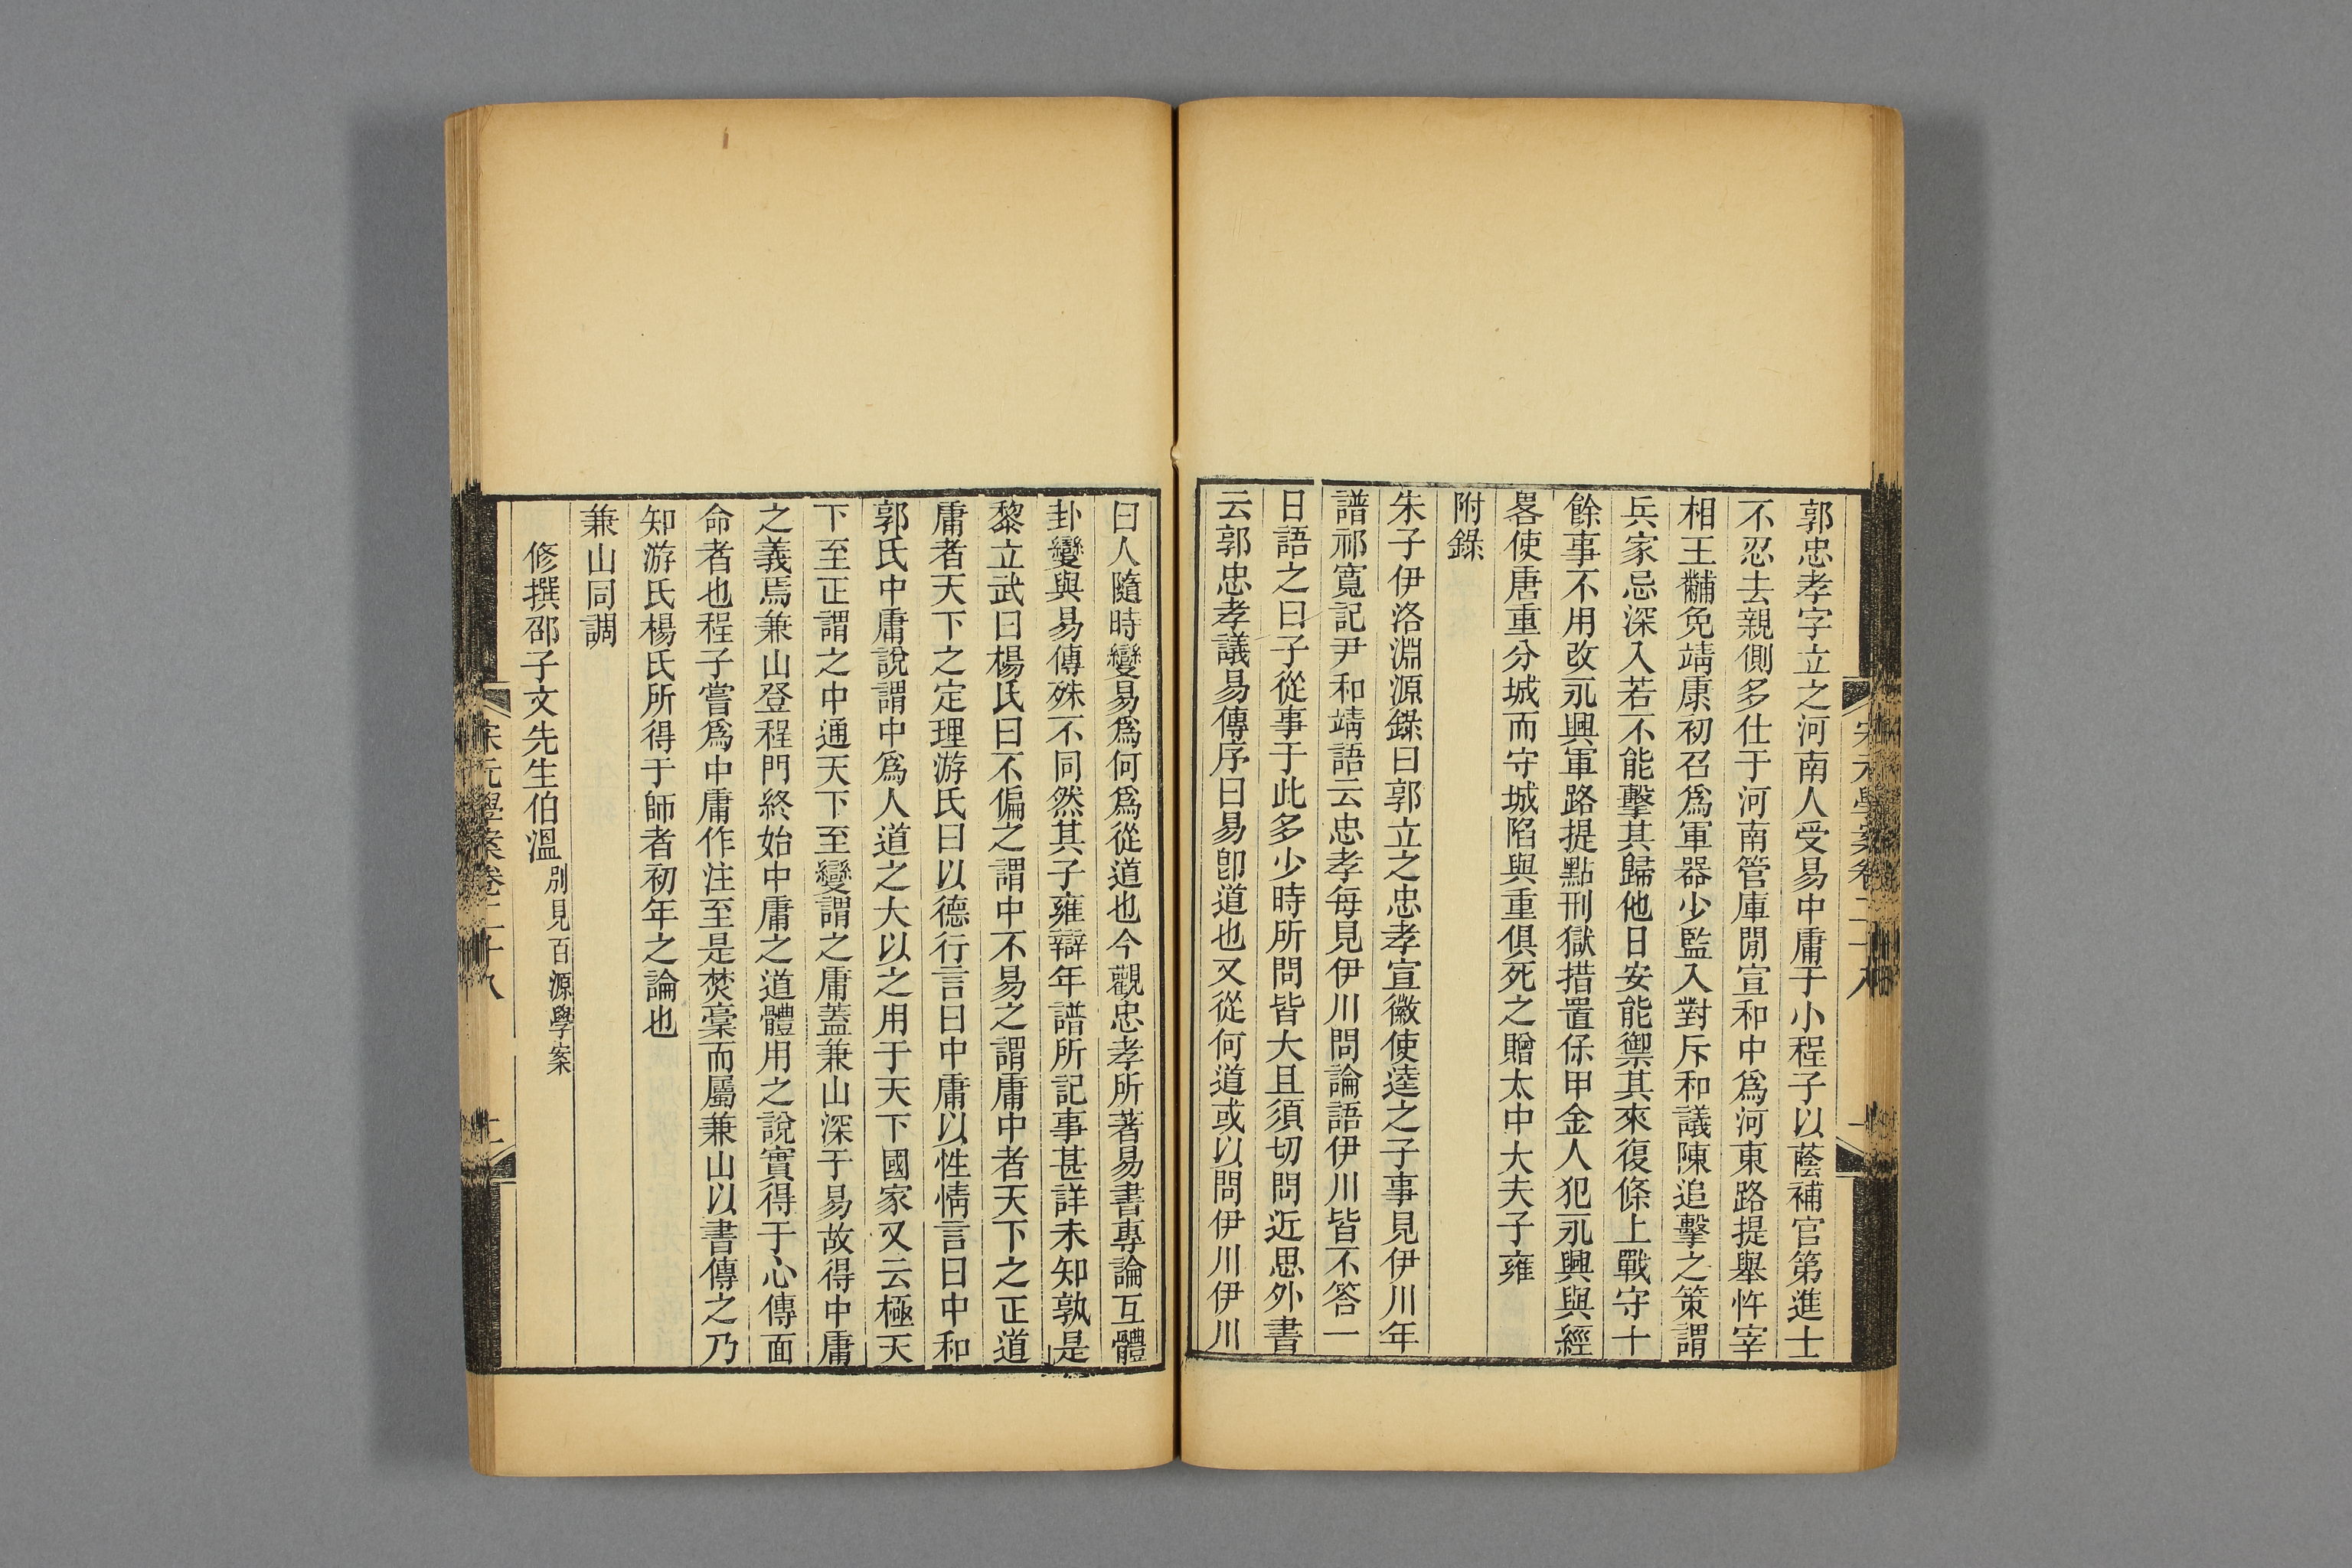 郭忠孝字立之河南人受易中庸于小程子以蔭補官第進士
不忍去親側多仕于河南管庫閒宣和中爲河東路提舉忤宰
相王黼免靖康初召爲軍器少監入對斥和議陳追擊之策謂
兵家忌深入若不能擊其歸他日安能禦其來復條上戰守十
餘事不用改永興軍路提點刑獄措置保甲金人犯永興與經
畧使唐重分城而守城陷與重俱死之贈太中大夫子雍
附錄
朱子伊洛淵源錄曰郭立之忠孝宣徽使逵之子事見伊川年
譜祁寬記尹和靖語云忠孝每見伊川問論語伊川皆不答一
日語之曰子從事于此多少時所問皆大且須切問近思外書
云郭忠孝議易傳序曰易卽道也又從何道或以問伊川伊川
曰人隨時變易爲何爲從道也今觀忠孝所著易書專論互體
卦變與易傳殊不同然其子雍辯年譜所記事甚詳未知孰是
黎立武曰楊氏曰不偏之謂中不易之謂庸中者天下之正道
庸者天下之定理游氏曰以德行言曰中庸以性情言曰中和
郭氏中庸說謂中爲人道之大以之用于天下國家又云極天
下至正謂之中通天下至變謂之庸蓋兼山深于易故得中庸
之義焉兼山登程門終始中庸之道體用之說實得于心傳面
命者也程子嘗爲中庸作注至是焚稾而屬兼山以書傳之乃
知游氏楊氏所得于師者初年之論也
兼山同調
修撰邵子文先生伯溫別見百源學案
宋元學案卷二十八
二